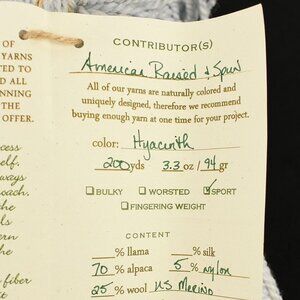 CONTRIBUTOR(S)
American Raised & Spun
All of our yarns are naturally colored and
uniquely designed, therefore we recommend
buying enough yarn at one time for your project.
color: Hyacinth
200 yds 3.3 oz / 94 gr
BULKY WORSTED SPORT
FINGERING WEIGHT
CONTENT
% llama % silk
70 % alpaca 5 % nylon
25 % wool US Merino
OF
YARNS
TED TO
ED ALL
NNING
THE
OFFER.
cess
elf.
ways
oach.
the
ls
ern
the
fiber